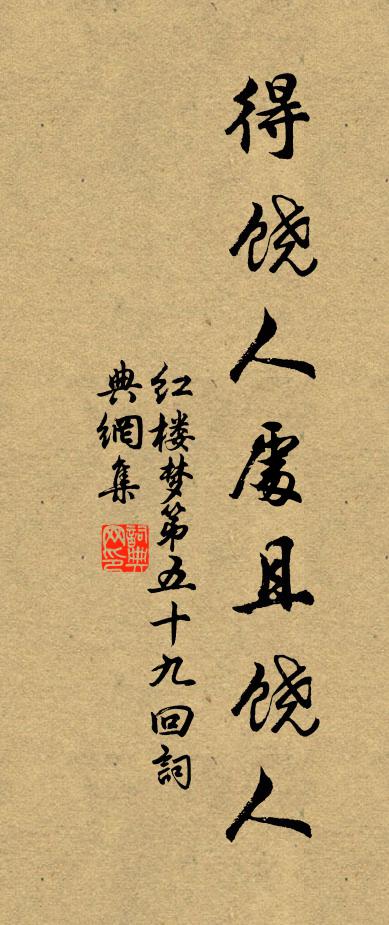 得饶人處且饶人
红楼梦第五十九回詞
典網集
詞典
网印